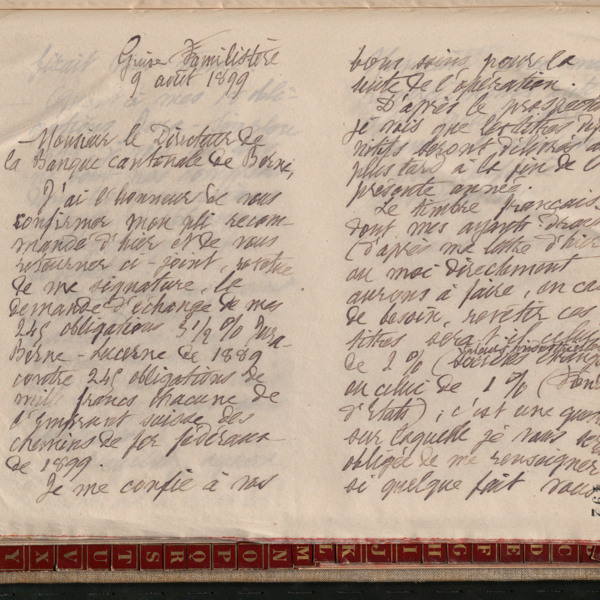 Guise Familistère
9 août 1899
Monsieur le Directeur de
la Banque cantonale de Berne,
J'ai l'honneur de vous
confirmer mon pli recom-
mandé d'hier et de vous
retourner ci-joint, revêtue
de ma signature, la
demande d'échange de mes
245 obligations 3 1/2 % Jura
Berne-Lucerne de 1889
contre 245 obligations de
mille francs chacune de
l'Emprunt suisse des
chemins de fer fédéraux
de 1899.
Je me confie à vos
bons soins pour la
suite de l'opération.
D'après le prospectus
je vois que les titres
seront délivrés au
plus tard à la fin de l
présente année.
Le timbre français
dont mes ayants-droit
(d'après ma lettre d'hier
ou moi directement
aurons à faire, en cas
de besoin, revêtir ces
titres sera-t-il celui
de 2 % (
ou celui de 1 % (Fonds
d'Etats) ; c'est une ques
sur laquelle je vous ser
obligée de me renseigner
si quelque fait vous
192
Y X V U T S R Q P O N M L K J I H G F E D C